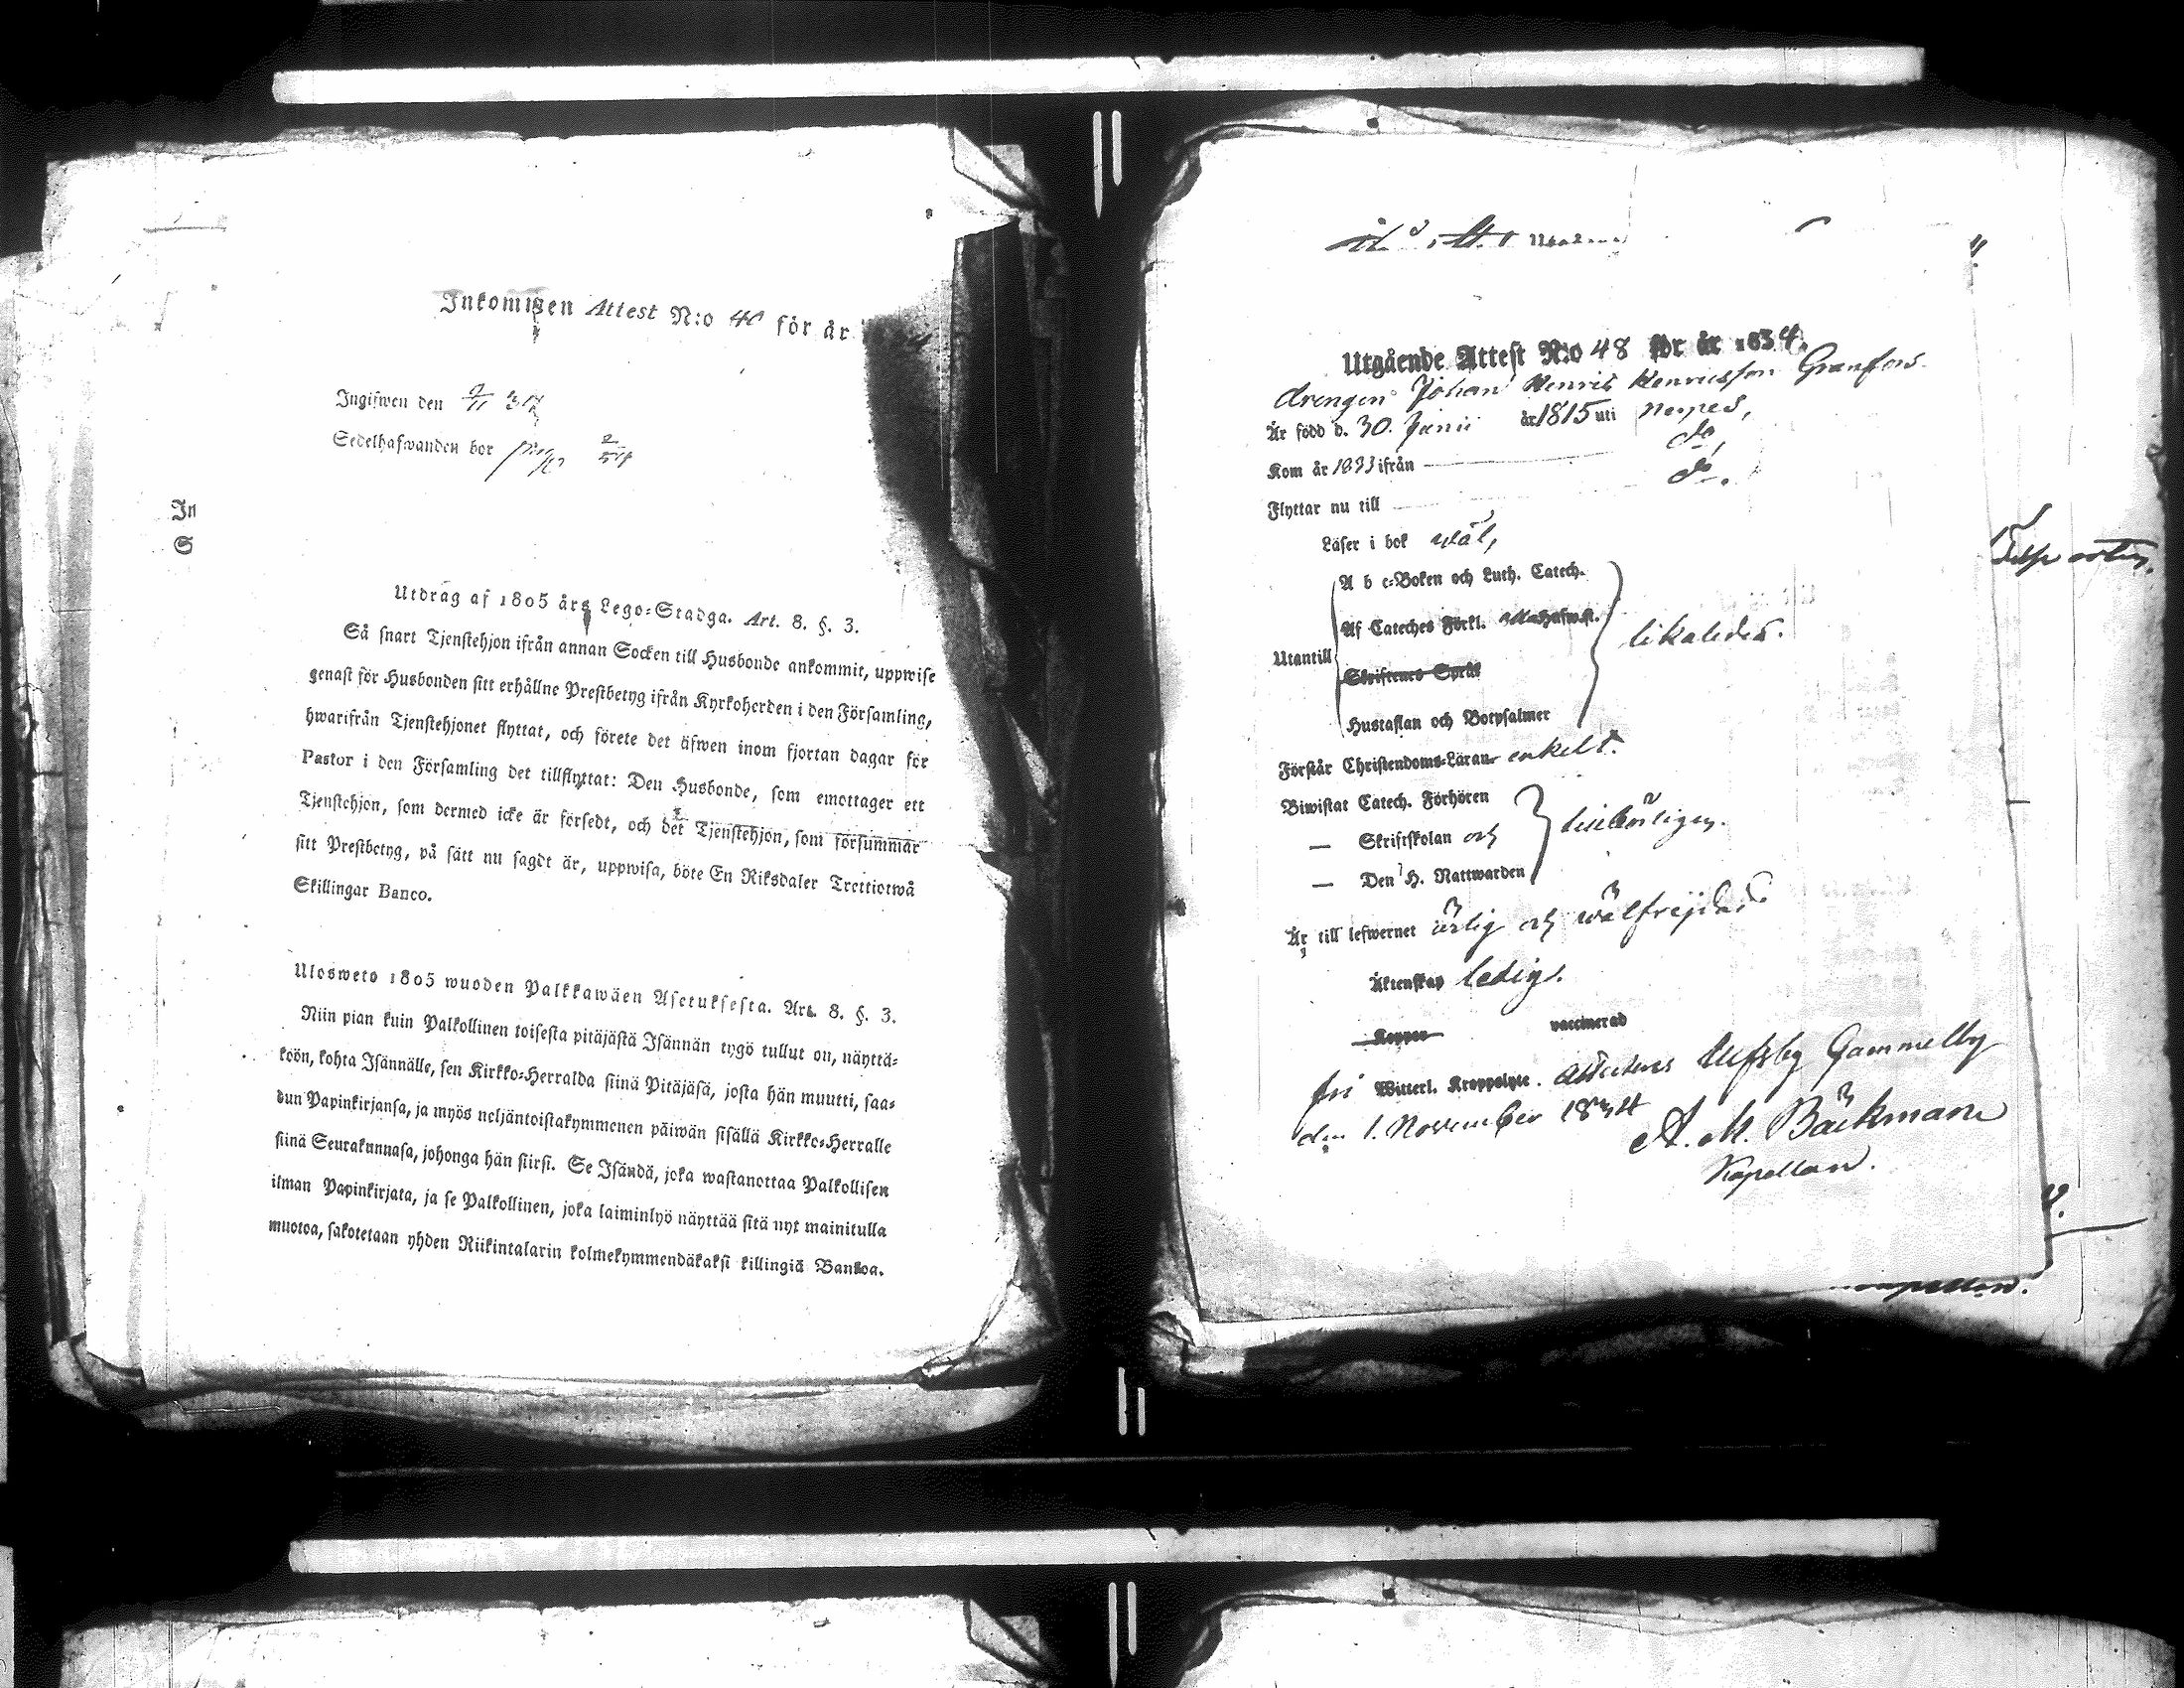 Inkommen Attest N:o 40 för år
Ingifwen den 9/11 34
Sedelhafwanden bor
In
S
Utdrag af 1805 års Lego-Stadga. Art. 8. §. 3.
Så snart Tjenstehjon ifrån annan Socken till Husbonde ankommit, uppwise
genast för Husbonden sitt erhållne Prestbetyg ifrån Kyrkoherden i den Församling,
hwarifrån Tjenstehjonet flyttat, och förete det äfwen inom fjortan dagar för
Pastor i den Församling det tillflyttat: Den Husbonde, som emottager ett
Tjenstehjon, som dermed icke är försedt, och det Tjenstehjon, som försummar
sitt Prestbetyg, på sätt nu sagdt är, uppwisa, böte En Riksdaler Trettiotwå
Skillingar Banco.
Ulosweto 1805 wuoden Palkkawäen Asetuksesta. Art. 8. §. 3.
Niin pian kuin Palkollinen toisesta pitäjästä Isännän tygö tullut on, näyttä-
köön, kohta Isännälle, sen Kirkko-Herralda siinä Pitäjäsä, josta hän muutti, saa-
dun Papinkirjansa, ja myös neljäntoistakymmenen päiwän sisällä Kirkko-Herralle
siinä Seurakunnasa, johonga hän siirsi. Se Isändä, joka wastanottaa Palkollisen
ilman Papinkirjata, ja se Palkollinen, joka laiminlyö näyttää sitä nyt mainitulla
muotoa, sakotetaan yhden Riikintalarin kolmekymmendäkaksi killingiä Bankoa.
Utgående Attest N:o 48 för år 1834.
drengen Johan Henric Henricsson Granfors
Är född d. 30. Junii år 1815 uti Nerpes,
Kom år 1833 ifrån do,
Flyttar nu till do.
Läser i bok wäl,
A b c-Boken och Luth. Catech.
Af Cateches Förkl.
Utantill likaledes.
Skriftenes Språk
Hustaflan och Botpsalmer
Förstår Christendoms-Läran enkelt.
Biwistat Catech. Förhören
— Skriftskolan och behörigen.
— Den H. Nattwarden
Är till lefwernet ärlig och wälfrejdad.
Äktenskap ledig.
Koppor vaccinerad
fri Witterl. Kroppslyte. attesteras Ulfsby Gammelby
den 1. November 1834
A. M. Bäckman
Kapellan.